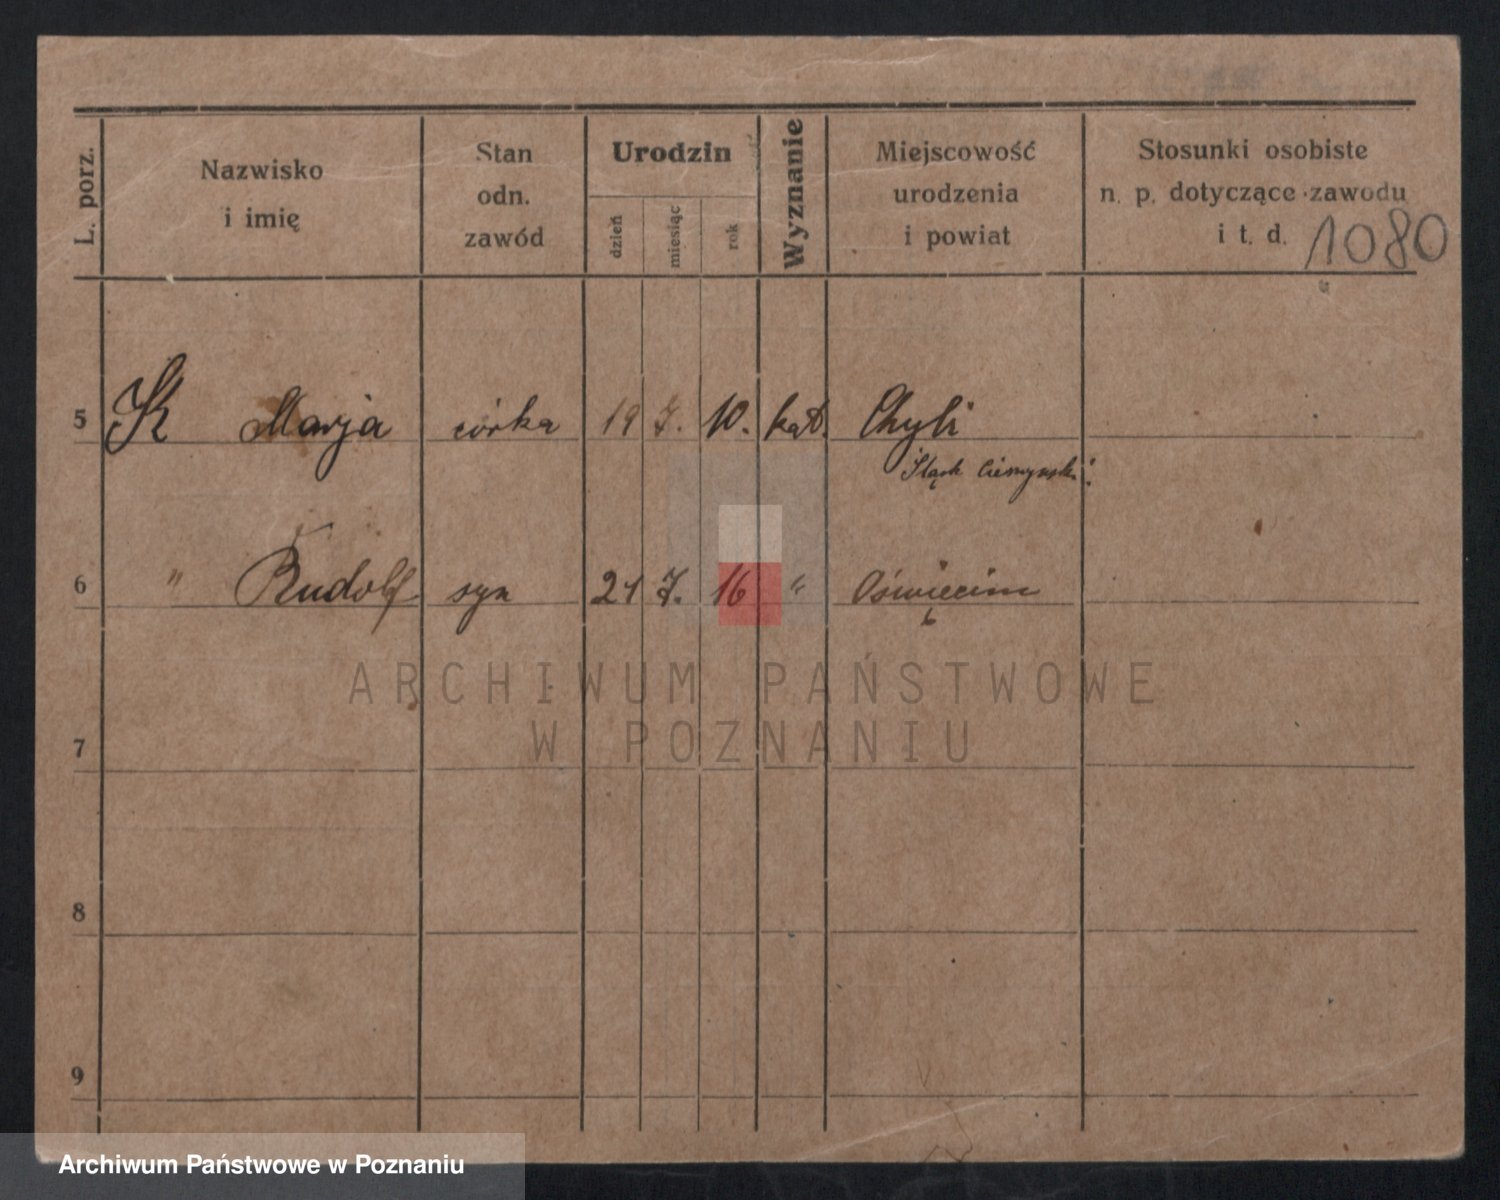 L. porz.
Nazwisko
i imię
Stan
odn.
zawód
Urodzin
dzień
miesiąc
rok
Wyznanie
Miejscowość
urodzenia
i powiat
Stosunki osobiste
n. p. dotyczące zawodu
i t. d. 1080
5 K Marja córka 19 7. 10. kat. Chybi
Śląsk Cieszyński.
6 " Rudolf syn 21 7. 16 " Oświęcim
ARCHIWUM PAŃSTWOWE
W POZNANIU
7
8
9
Archiwum Państwowe w Poznaniu